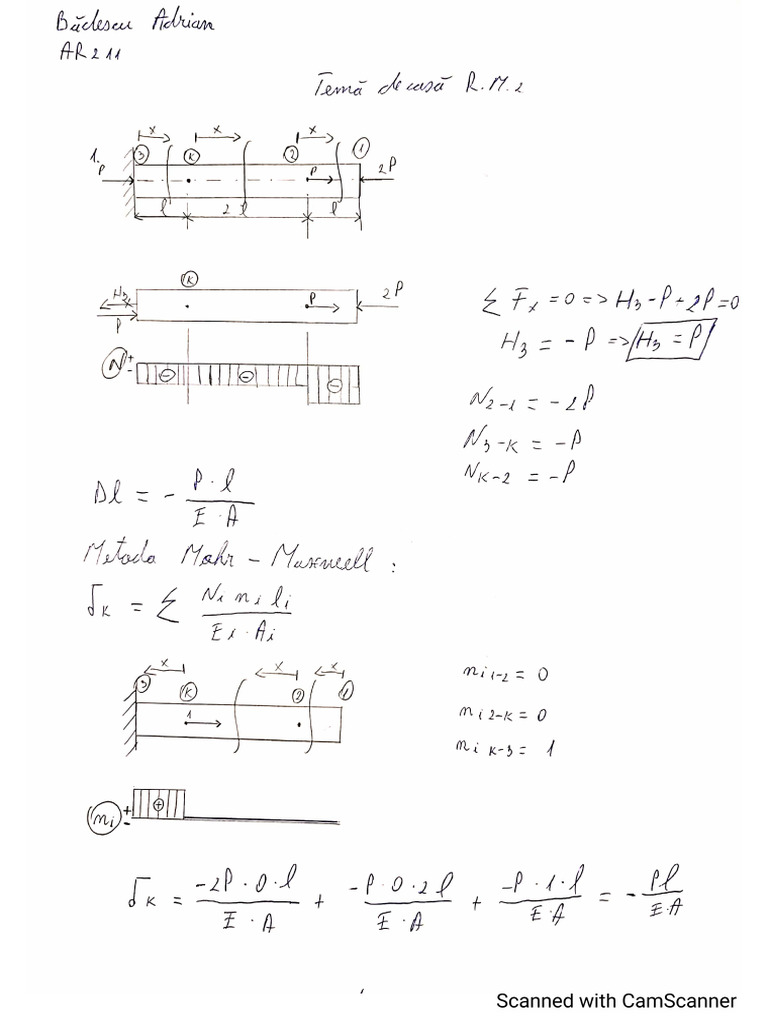 Băclescu Adrian
AR211
Temă de casă R.M.2
1.
x x x
3 K 2 1
P P 2P
l 2l l
K
H₃ P 2P
P
Σ Fₓ = 0 => H₃ - P + 2P = 0
H₃ = - P => H₃ = P
N + -
- - -
N₂₋₁ = - 2P
N₃₋K = - P
NK₋₂ = - P
Dl = - P · l / E · A
Metoda Mohr - Maxwell :
δK = Σ Ni ni li / Ei · Ai
x x x
3 K 2 1
1
ni 1-2 = 0
ni 2-K = 0
ni K-3 = 1
ni + -
+
δK = -2P · 0 · l / E · A + -P · 0 · 2l / E · A + -P · 1 · l / E · A = - Pl / E · A
Scanned with CamScanner